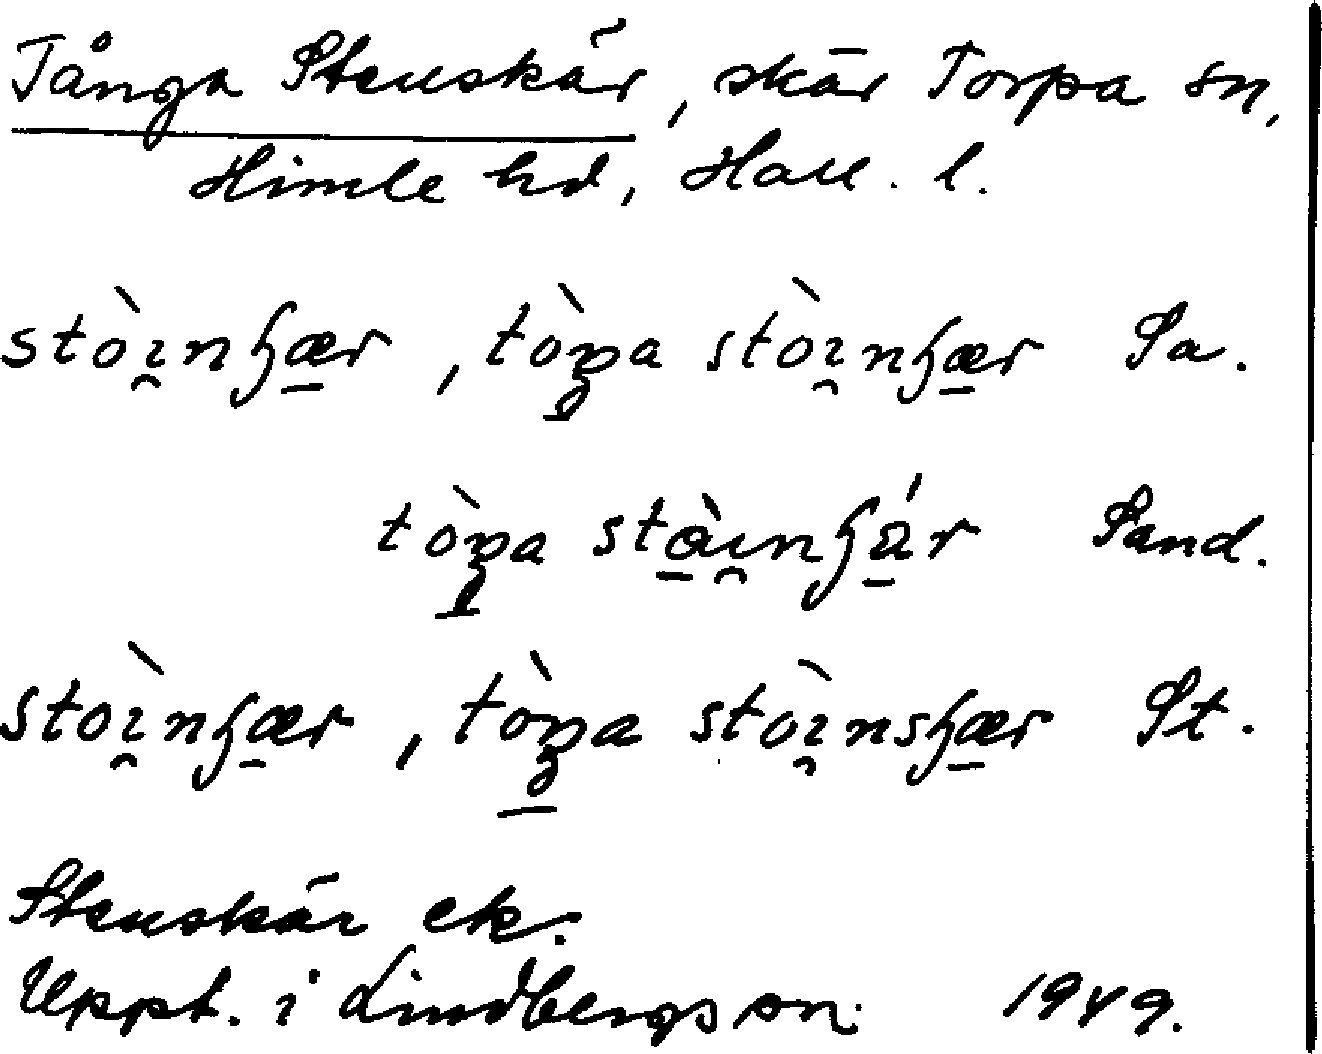 Tånga Stenskär, skär Torpa sn,
Himle hd, Hall. l.
stòi̯nʃæ̱r, tòŋa stòi̯nʃæ̱r Sa.
tòŋa stà̱i̯nʃá̱r Sand.
stòi̯nʃæ̱r, tòŋa stòi̯nsʃæ̱r St.
Stenskär ek.
Uppt. i Lindbergs sn. 1949.